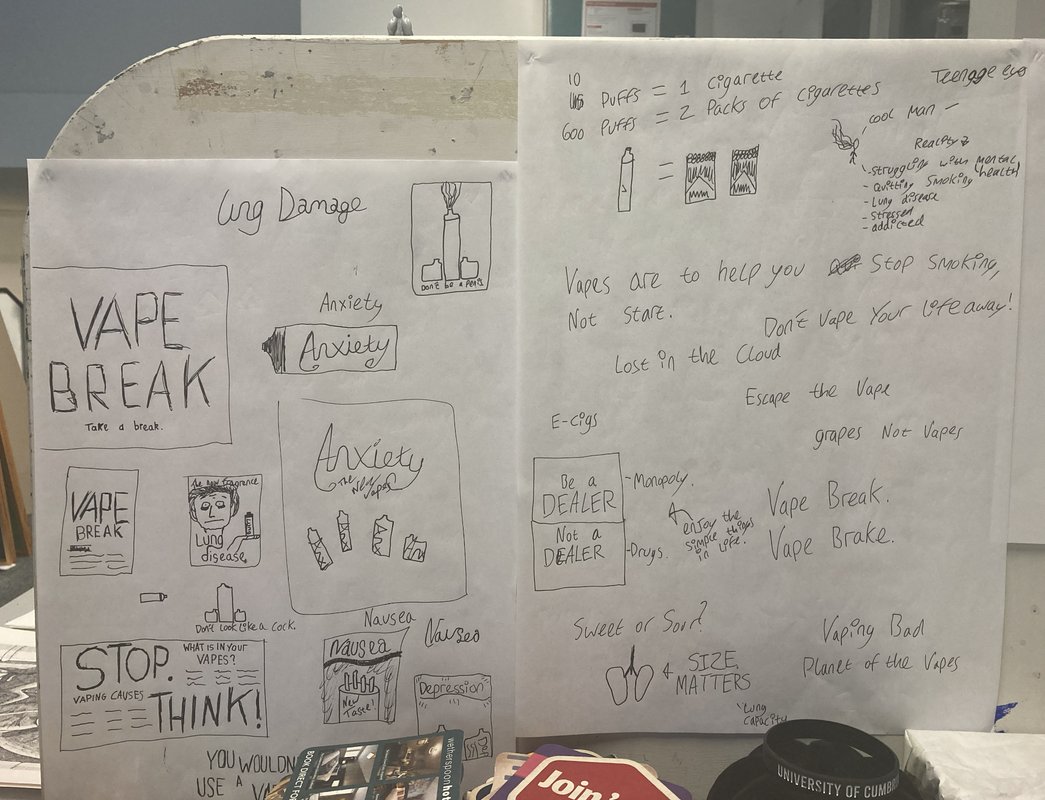 Lung Damage
Don't be a Penis
VAPE
BREAK
Take a break.
Anxiety
Anxiety
Anxiety
The New Vapes
VAPE
BREAK
The new fragrance
Lung
disease.
Don't Look Like a Cock.
STOP.
WHAT IS IN YOUR
VAPES?
VAPING CAUSES
THINK!
Nausea
Nausea
Nausea
New
Taste!
Depression
YOU WOULDN
USE A
10
PUFFS = 1 Cigarette
600 PUFFS = 2 Packs of cigarettes
Teenage
cool Man -
Reality
- Struggling with mental health
- Quitting Smoking
- Lung disease
- Stressed
- addicted
Vapes are to help you Stop Smoking,
Not Start.
Don't Vape Your Life away!
Lost in the Cloud
Escape the Vape
grapes Not Vapes
E-cigs
Be a
DEALER
- Monopoly.
Not a
DEALER
- Drugs.
enjoy the
simple things
in life.
Vape Break.
Vape Brake.
Sweet or Sour?
SIZE
MATTERS
Lung
Capacity
Vaping Bad
Planet of the Vapes
BOOK DIRECT FO
wetherspoonhot
Join
UNIVERSITY OF CUMB